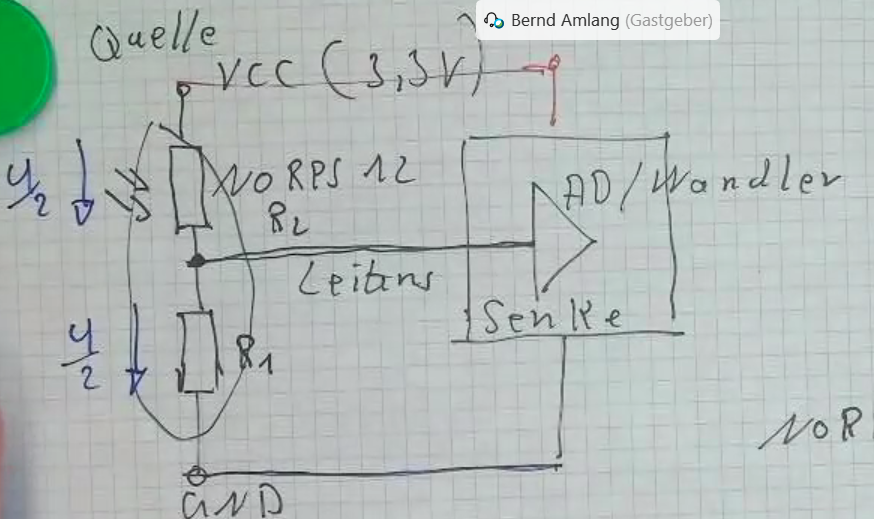 Bernd Amlang (Gastgeber)
Quelle
VCC (3,3V)
U/2
NORPS 12
R2
AD/Wandler
Leitung
Senke
U/2
R1
NOR
GND